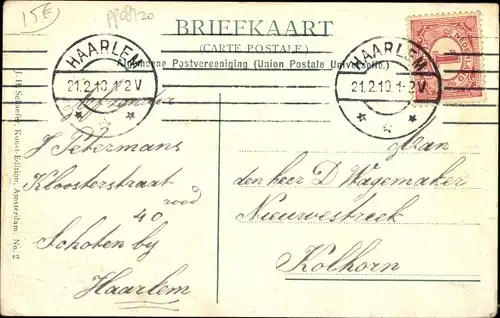 15E
BRIEFKAART
(CARTE POSTALE)
Algemeene Postvereeniging (Union Postale Universelle.)
HAARLEM
21.2.10.1-2V
HAARLEM
21.2.10.1-2V
1
Afzender
J Petermans
Kloosterstraat
40 rood
Schoten bij
Haarlem
Aan
den heer D Wagemaker
Nieuwestreek
Kolhorn
J. H. Schaefer, Kunst-Edition, Amsterdam. No. 2